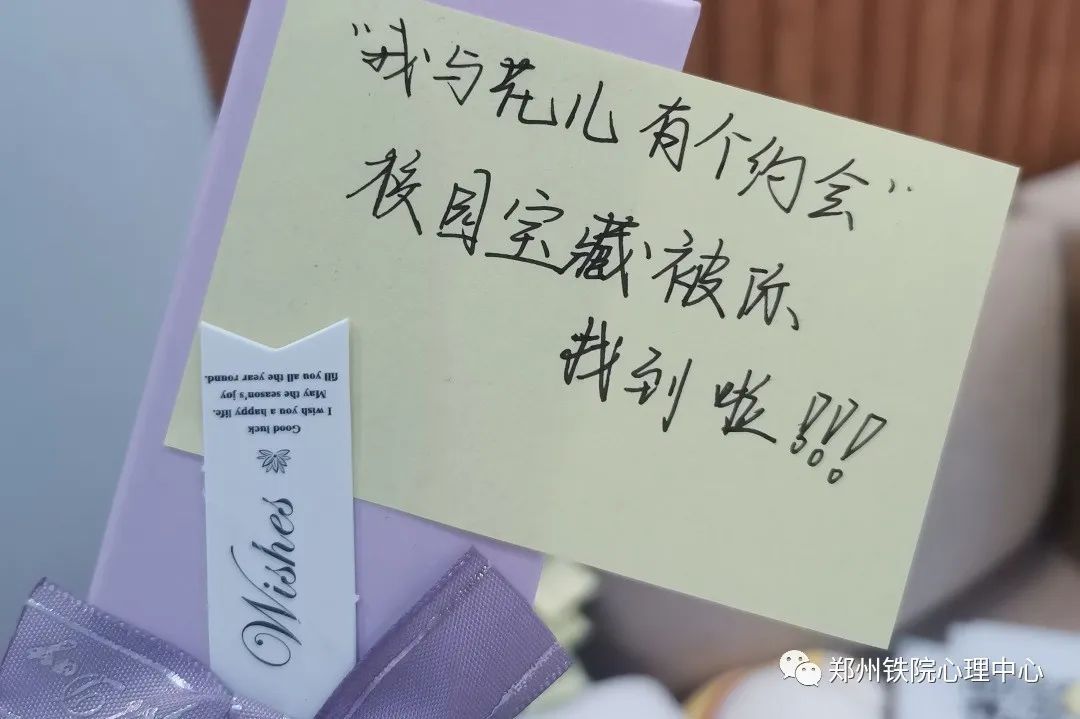 “我与花儿有个约会”
校园宝藏被你
找到啦!!!
fill you all the year round.
May the season's joy
I wish you a happy life.
Good luck
Wishes
郑州铁院心理中心